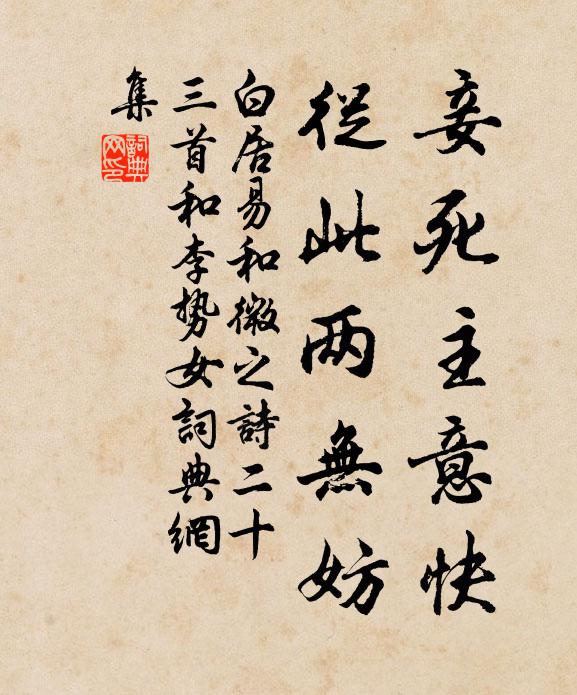 妾死主意快
從此两無妨
白居易和微之詩二十
三首和李势女詞典網
集
詞典网印